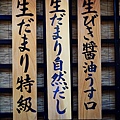 生びき醤油うす口
生だまり自然だし
生だまり特級